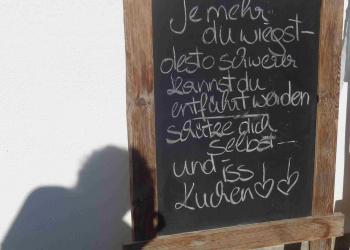 Je mehr
du wiegst -
desto schwerer
kannst du
entführt werden
schütze dich
selbst --
und iss
Kuchen